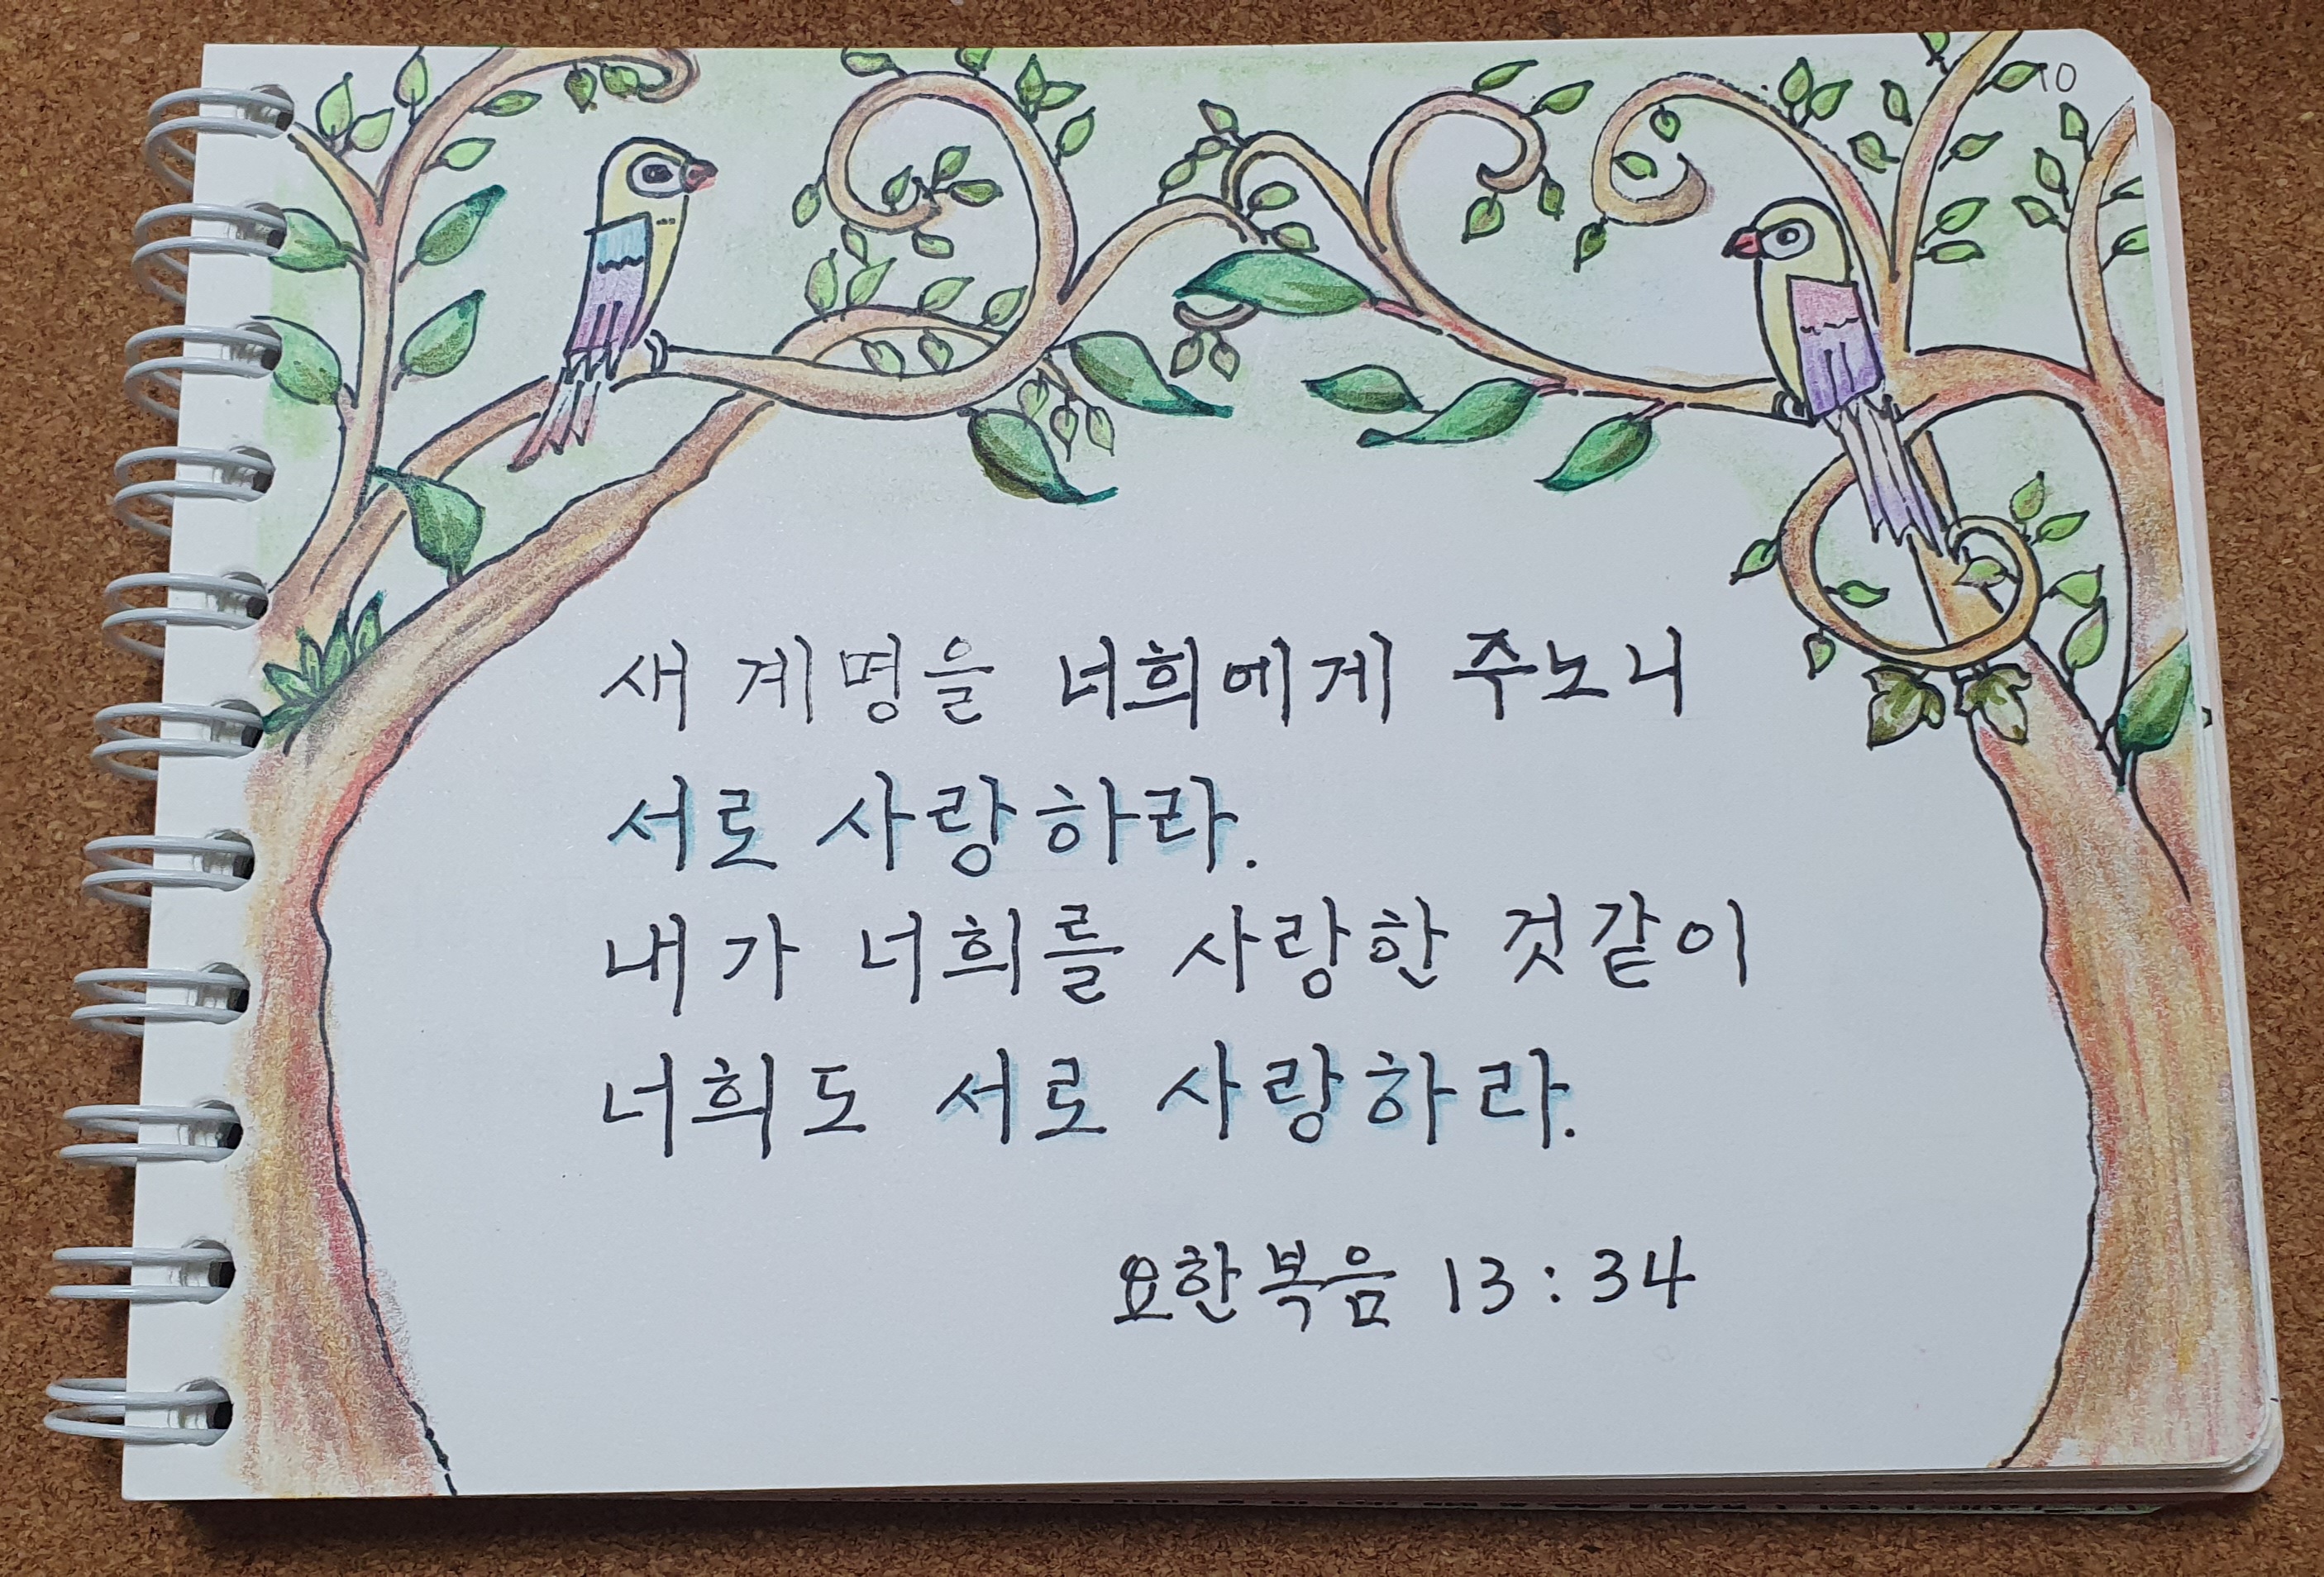 10
새 계명을 너희에게 주노니
서로 사랑하라.
내가 너희를 사랑한 것같이
너희도 서로 사랑하라.
요한복음 13:34